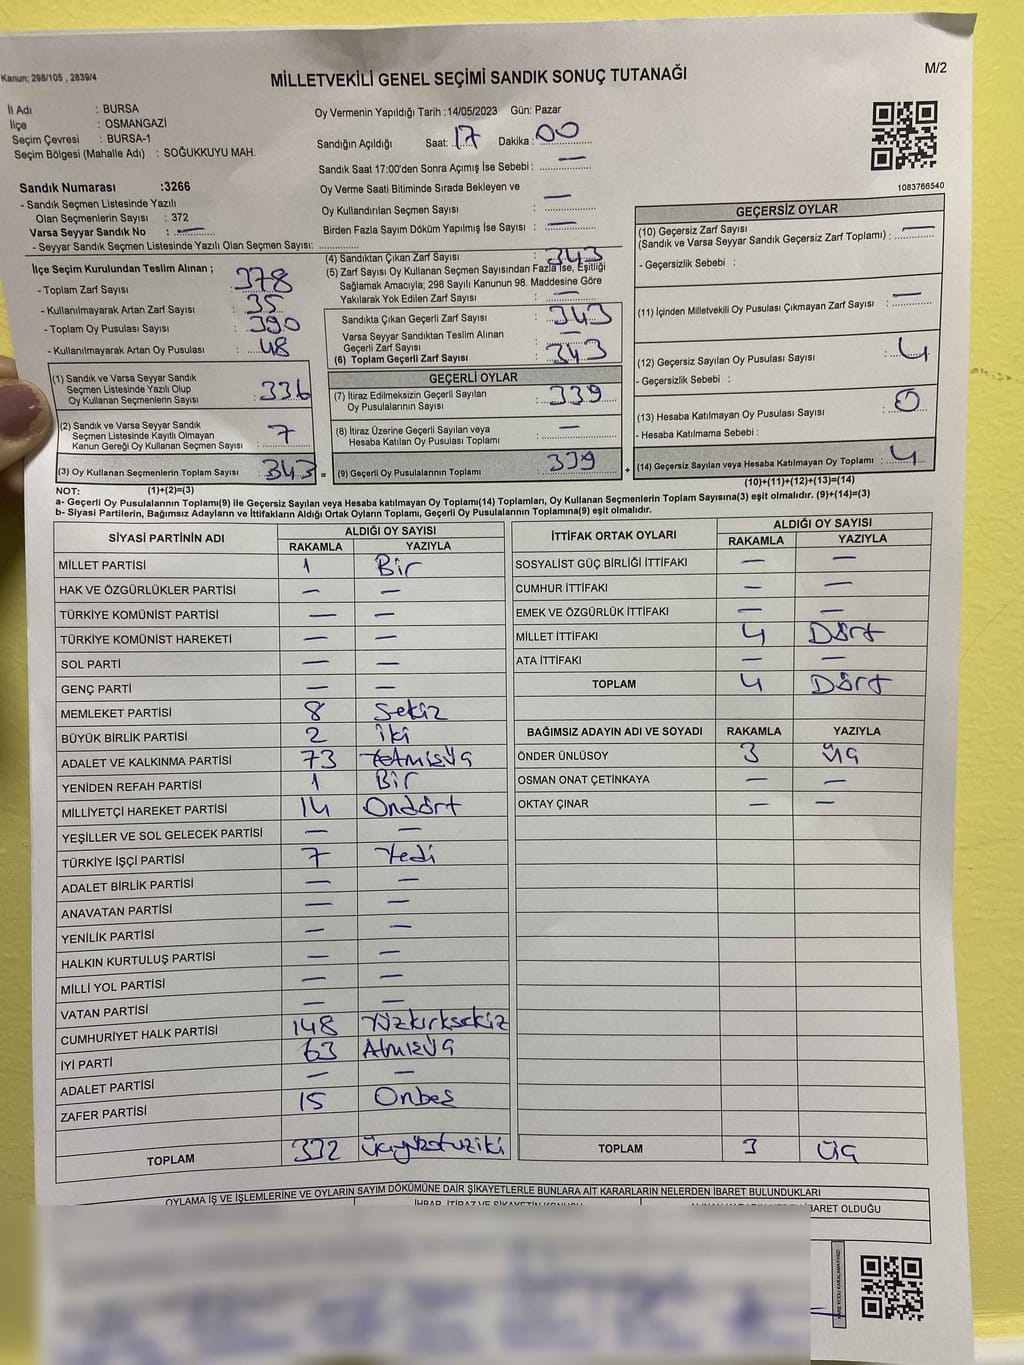 Kanun; 298/105 , 2839/4
MİLLETVEKİLİ GENEL SEÇİMİ SANDIK SONUÇ TUTANAĞI
M/2
İl Adı : BURSA
İlçe : OSMANGAZİ
Seçim Çevresi : BURSA-1
Seçim Bölgesi (Mahalle Adı) : SOĞUKKUYU MAH.
Sandık Numarası :3266
- Sandık Seçmen Listesinde Yazılı
Olan Seçmenlerin Sayısı : 372
Varsa Seyyar Sandık No : —
- Seyyar Sandık Seçmen Listesinde Yazılı Olan Seçmen Sayısı: ............
İlçe Seçim Kurulundan Teslim Alınan ;
- Toplam Zarf Sayısı : 378
- Kullanılmayarak Artan Zarf Sayısı : 35
- Toplam Oy Pusulası Sayısı : 390
- Kullanılmayarak Artan Oy Pusulası : 48
(1) Sandık ve Varsa Seyyar Sandık
Seçmen Listesinde Yazılı Olup
Oy Kullanan Seçmenlerin Sayısı : 336
(2) Sandık ve Varsa Seyyar Sandık
Seçmen Listesinde Kayıtlı Olmayan
Kanun Gereği Oy Kullanan Seçmen Sayısı : 7
(3) Oy Kullanan Seçmenlerin Toplam Sayısı : 343 =
Oy Vermenin Yapıldığı Tarih :14/05/2023 Gün: Pazar
Sandığın Açıldığı Saat: 17 Dakika : 00
Sandık Saat 17:00'den Sonra Açımış İse Sebebi : —
Oy Verme Saati Bitiminde Sırada Bekleyen ve
Oy Kullandırılan Seçmen Sayısı : —
Birden Fazla Sayım Döküm Yapılmış İse Sayısı : —
(4) Sandıktan Çıkan Zarf Sayısı : 343
(5) Zarf Sayısı Oy Kullanan Seçmen Sayısından Fazla İse, Eşitliği
Sağlamak Amacıyla; 298 Sayılı Kanunun 98. Maddesine Göre
Yakılarak Yok Edilen Zarf Sayısı : —
Sandıkta Çıkan Geçerli Zarf Sayısı : 343
Varsa Seyyar Sandıktan Teslim Alınan
Geçerli Zarf Sayısı : —
(6) Toplam Geçerli Zarf Sayısı : 343
GEÇERLİ OYLAR
(7) İtiraz Edilmeksizin Geçerli Sayılan
Oy Pusulalarının Sayısı : 339
(8) İtiraz Üzerine Geçerli Sayılan veya
Hesaba Katılan Oy Pusulaları Toplamı : —
(9) Geçerli Oy Pusulalarının Toplamı : 339 +
1083766540
GEÇERSİZ OYLAR
(10) Geçersiz Zarf Sayısı
(Sandık ve Varsa Seyyar Sandık Geçersiz Zarf Toplamı) : —
- Geçersizlik Sebebi :
(11) İçinden Milletvekili Oy Pusulası Çıkmayan Zarf Sayısı : —
(12) Geçersiz Sayılan Oy Pusulası Sayısı : 4
- Geçersizlik Sebebi :
(13) Hesaba Katılmayan Oy Pusulası Sayısı : 0
- Hesaba Katılmama Sebebi :
(14) Geçersiz Sayılan veya Hesaba Katılmayan Oy Toplamı : 4
(10)+(11)+(12)+(13)=(14)
NOT: (1)+(2)=(3)
a- Geçerli Oy Pusulalarının Toplamı(9) ile Geçersiz Sayılan veya Hesaba katılmayan Oy Toplamı(14) Toplamları, Oy Kullanan Seçmenlerin Toplam Sayısına(3) eşit olmalıdır. (9)+(14)=(3)
b- Siyasi Partilerin, Bağımsız Adayların ve İttifakların Aldığı Ortak Oyların Toplamı, Geçerli Oy Pusulalarının Toplamına(9) eşit olmalıdır.
SİYASİ PARTİNİN ADI ALDIĞI OY SAYISI
RAKAMLA YAZIYLA
MİLLET PARTİSİ 1 Bir
HAK VE ÖZGÜRLÜKLER PARTİSİ — —
TÜRKİYE KOMÜNİST PARTİSİ — —
TÜRKİYE KOMÜNİST HAREKETİ — —
SOL PARTİ — —
GENÇ PARTİ — —
MEMLEKET PARTİSİ 8 Sekiz
BÜYÜK BİRLİK PARTİSİ 2 İki
ADALET VE KALKINMA PARTİSİ 73 Yetmişüç
YENİDEN REFAH PARTİSİ 1 Bir
MİLLİYETÇİ HAREKET PARTİSİ 14 Ondört
YEŞİLLER VE SOL GELECEK PARTİSİ — —
TÜRKİYE İŞÇİ PARTİSİ 7 Yedi
ADALET BİRLİK PARTİSİ — —
ANAVATAN PARTİSİ — —
YENİLİK PARTİSİ — —
HALKIN KURTULUŞ PARTİSİ — —
MİLLİ YOL PARTİSİ — —
VATAN PARTİSİ — —
CUMHURİYET HALK PARTİSİ 148 Yüzkırksekiz
İYİ PARTİ 63 Atmışüç
ADALET PARTİSİ — —
ZAFER PARTİSİ 15 Onbeş
TOPLAM 332 üçyüzotuziki
İTTİFAK ORTAK OYLARI ALDIĞI OY SAYISI
RAKAMLA YAZIYLA
SOSYALİST GÜÇ BİRLİĞİ İTTİFAKI — —
CUMHUR İTTİFAKI — —
EMEK VE ÖZGÜRLÜK İTTİFAKI — —
MİLLET İTTİFAKI 4 Dört
ATA İTTİFAKI — —
TOPLAM 4 Dört
BAĞIMSIZ ADAYIN ADI VE SOYADI RAKAMLA YAZIYLA
ÖNDER ÜNLÜSOY 3 üç
OSMAN ONAT ÇETİNKAYA — —
OKTAY ÇINAR — —
TOPLAM 3 üç
OYLAMA İŞ VE İŞLEMLERİNE VE OYLARIN SAYIM DÖKÜMÜNE DAİR ŞİKAYETLERLE BUNLARA AİT KARARLARIN NELERDEN İBARET BULUNDUKLARI
İHBAR, İTİRAZ VE ŞİKAYETİN KONUSU
İBARET OLDUĞU